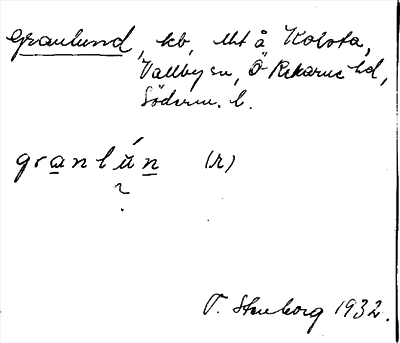 Granlund, kb, lht å Kolsta,
Vallby sn, Ö Rekarne hd,
Söderm. l.
granlún (r)
T. Stenborg 1932.